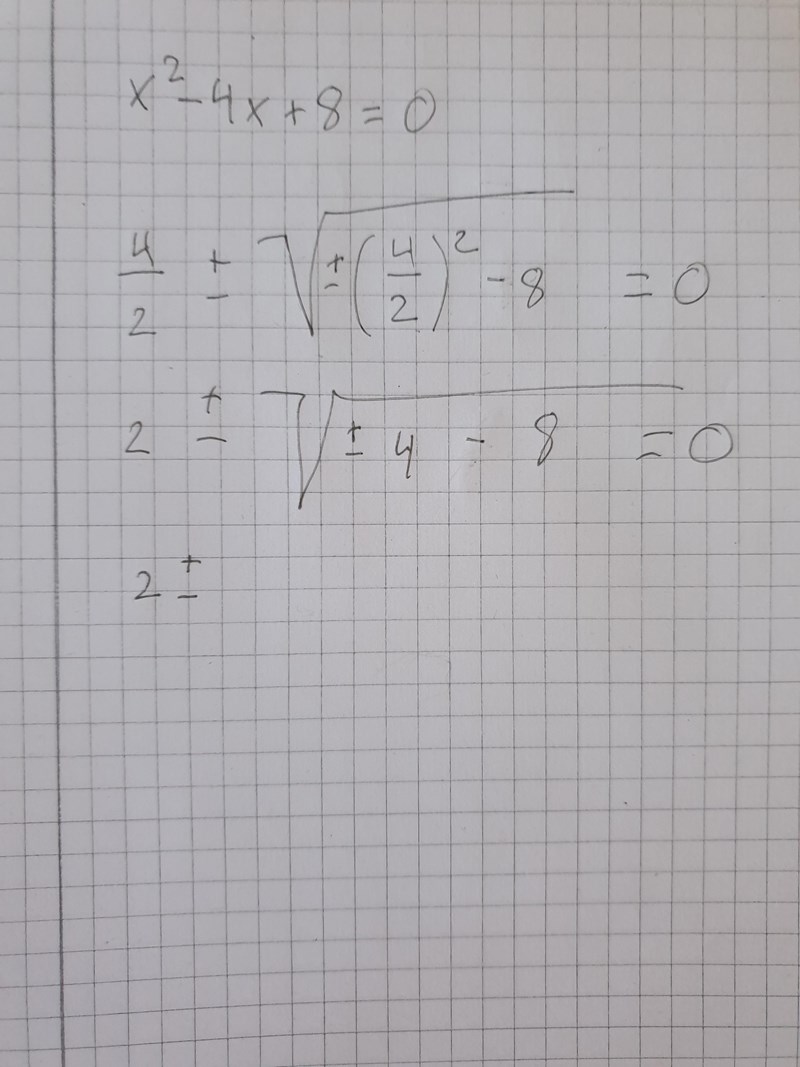 x² - 4x + 8 = 0
4/2 ± √(±(4/2)² - 8) = 0
2 ± √(± 4 - 8) = 0
2 ±